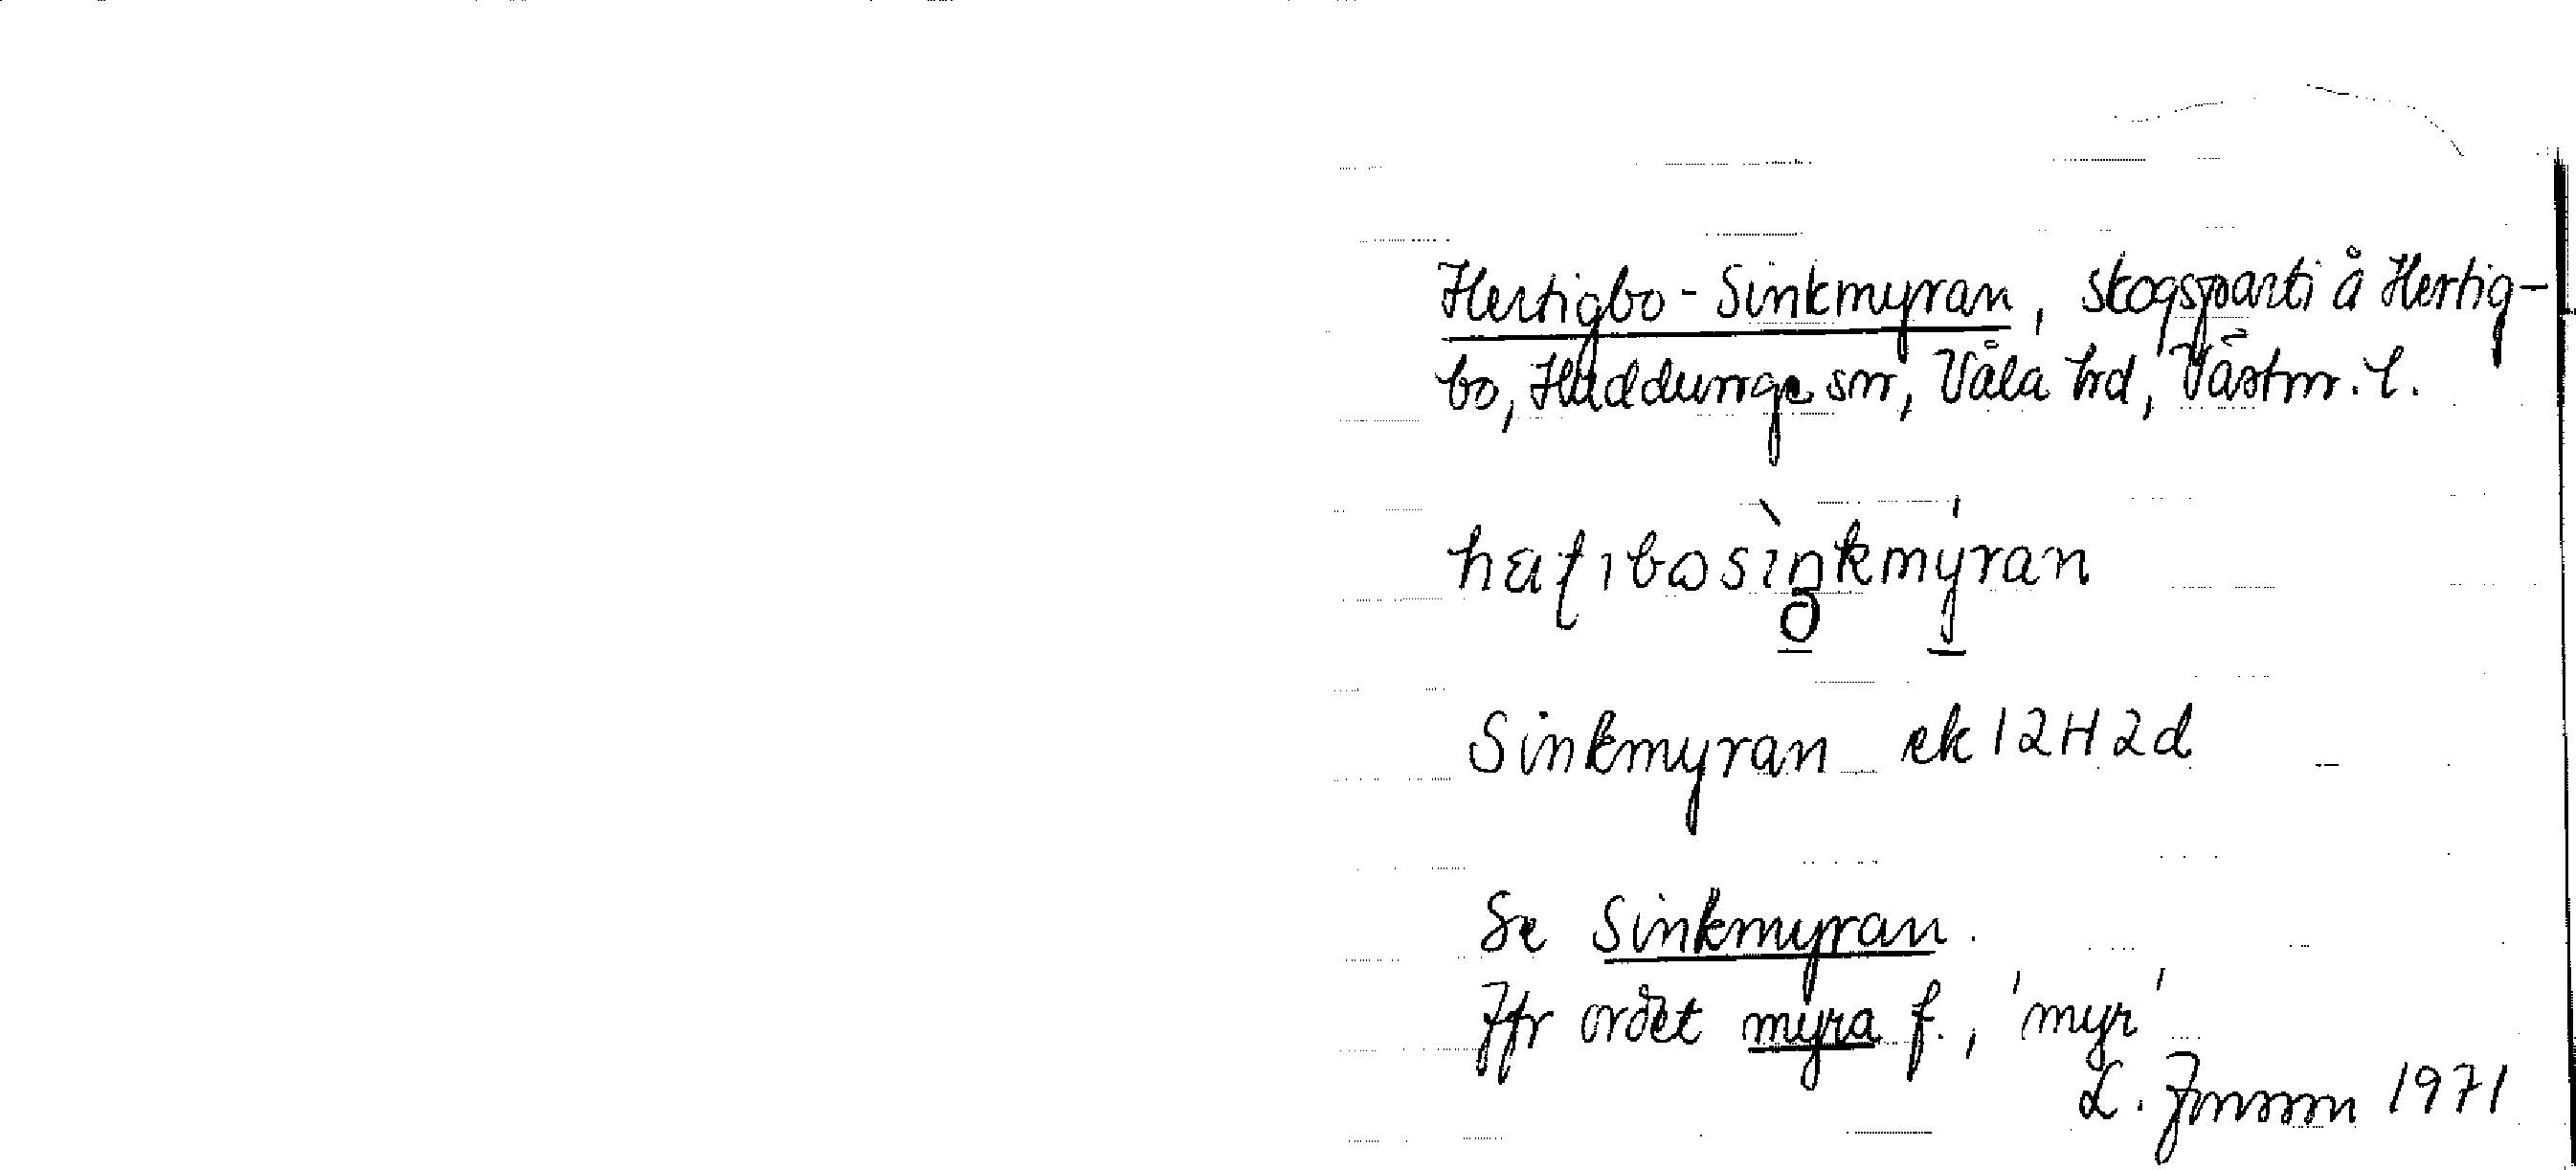 Hertigbo-Sinkmyran, skogsparti å Hertig-
bo, Huddunge sn, Våla hd, Västm. l.
Sinkmyran ek 12H2d
Se Sinkmyran.
Jfr ordet myra f., 'myr'
L. Jonsson 1971